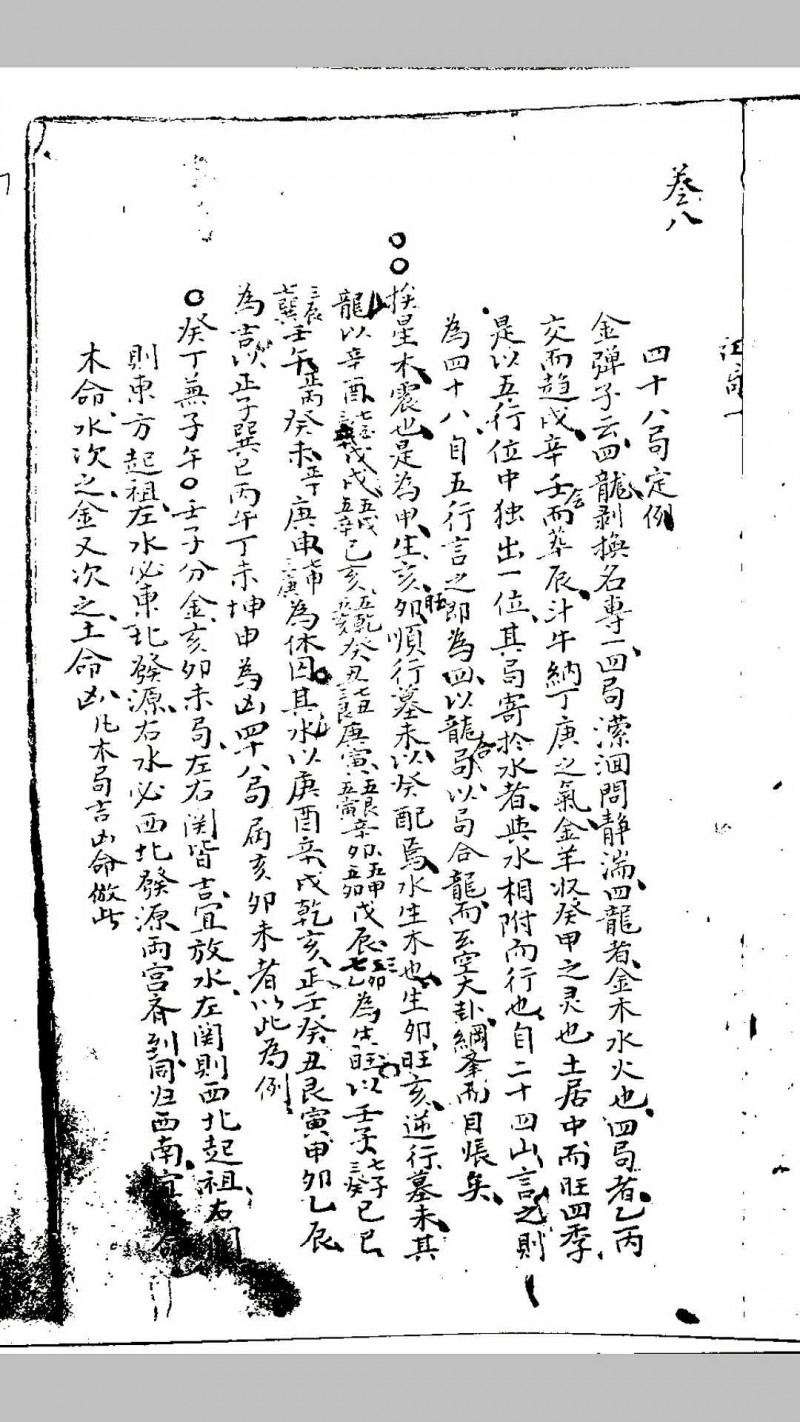 卷八
四十八局定例
金彈子云四龍剥換名專一四局瀠洄問静湍四龍者金木水火也四局者乙丙
交而趋戌辛壬會而葬辰斗牛納丁庚之氣金羊収癸甲之灵也土居中而旺四季
是以五行位中独出一位其局寄於水者與水相附而行也自二十四山言之則
為四十八自五行言之即為四以龍合局以局合龍而玄空大卦綱峯而目悵矣
挨星木震也是為甲生亥旺卯順行墓未以癸配焉水生木也生卯旺亥逆行墓未其
龍以辛酉戊戌五戌五辛己亥五乾五亥癸丑七丑三艮庚寅五艮五寅辛卯五甲五卯戊辰三卯七乙為生旺以壬子七子三癸己巳
三辰七巽壬午正丙癸未正丁庚申七申三庚為休囚其水以庚酉辛戌乾亥正壬癸丑艮寅甲卯乙辰
為吉以正子巽巳丙午丁未坤申為凶四十八局屬亥卯未者以此為例
癸丁兼子午壬子分金亥卯未局左右関皆吉宜放水左関則西北起祖右関
則東方起祖左水必東北發源右水必西北發源両宫齐到同归西南宜
木命水次之金又次之土命凶凡木局吉凶命倣此